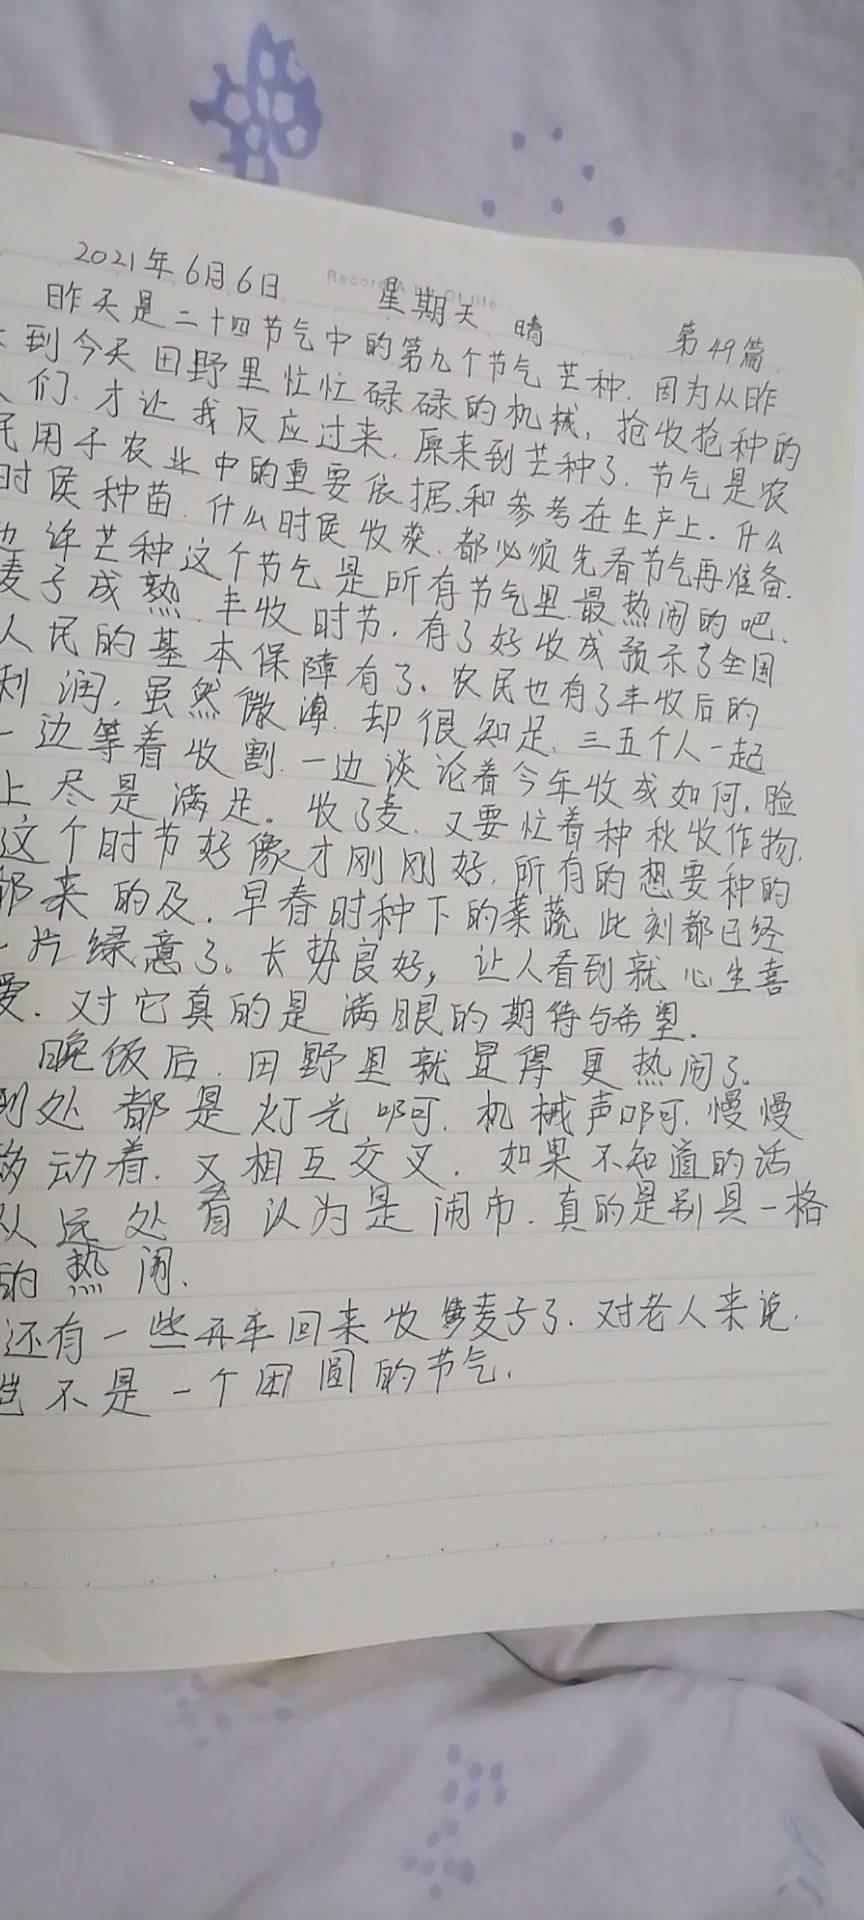 2021年6月6日 星期天 晴 第49篇
昨天是二十四节气中的第九个节气芒种.因为从昨
到今天田野里忙忙碌碌的机械,抢收抢种的
人们.才让我反应过来.原来到芒种了.节气是农
民用于农业中的重要依据.和参考在生产上.什么
时侯种苗.什么时侯收获.都必须先看节气再准备.
也许芒种这个节气是所有节气里.最热闹的吧.
麦子成熟.丰收时节.有了好收成预示了全国
人民的基本保障有了.农民也有了丰收后的
利润.虽然微薄.却很知足.三五个人一起
一边等着收割.一边谈论着今年收成如何.脸
上尽是满足。收了麦.又要忙着种秋收作物.
这个时节好像才刚刚好.所有的想要种的
都来的及.早春时种下的菜蔬此刻都已经
一片绿意了。长势良好,让人看到就心生喜
爱.对它真的是满眼的期待与希望.
晚饭后.田野里就显得更热闹了.
到处都是灯光啊.机械声啊.慢慢
移动着.又相互交叉.如果不知道的话
从远处看认为是闹市.真的是别具一格
的热闹.
还有一些开车回来收麦子了.对老人来说.
岂不是一个团圆的节气.